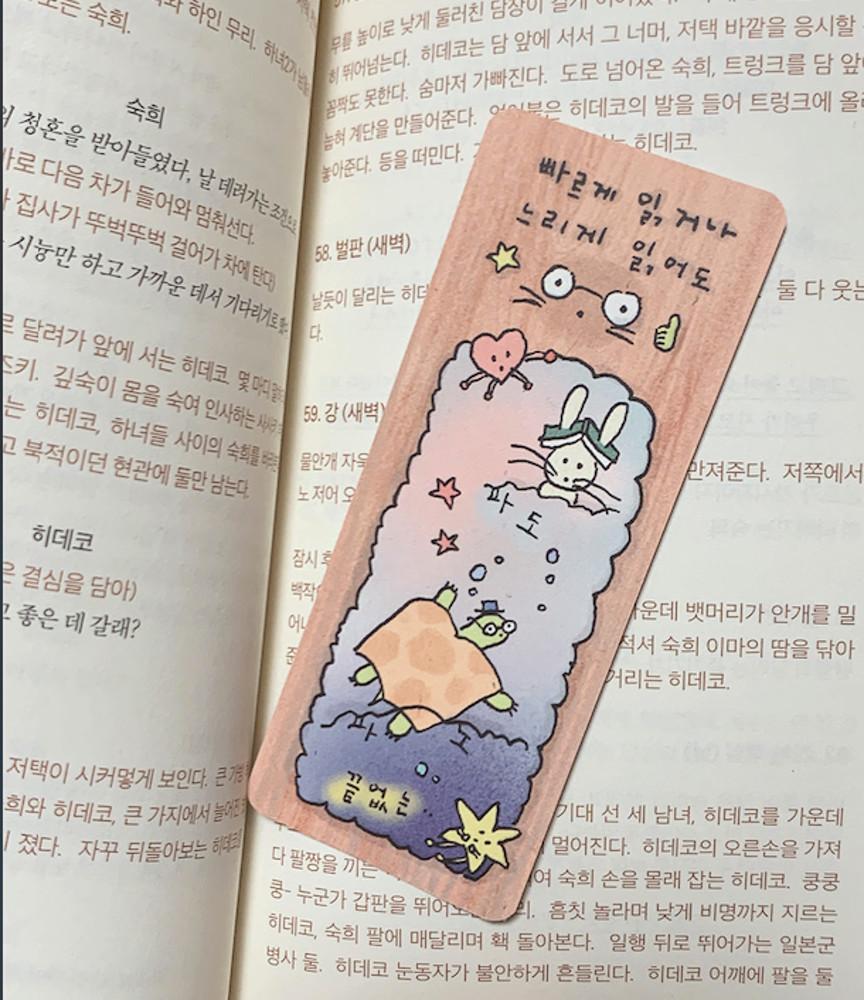 하인 무리.
숙희.
숙희
청혼을 받아들였다, 날 데려가는 조건으로
바로 다음 차가 들어와 멈춰선다.
집사가 뚜벅뚜벅 걸어가 차에 탄다)
시늉만 하고 가까운 데서 기다리기로
달려가 앞에 서는 히데코. 몇 마디
깊숙이 몸을 숙여 인사하는
는 히데코, 하녀들 사이의 숙희를
북적이던 현관에 둘만 남는다.
히데코
결심을 담아)
좋은 데 갈래?
저택이 시커멓게 보인다. 큰
희와 히데코, 큰 가지에서
졌다. 자꾸 뒤돌아보는 히데코
무릎 높이로 낮게 둘러친 담장이 길게
히 뛰어넘는다. 히데코는 담 앞에 서서 그 너머, 저택 바깥을 응시할
꼼짝도 못한다. 숨마저 가빠진다. 도로 넘어온 숙희, 트렁크를 담
눕혀 계단을 만들어준다. 히데코의 발을 들어 트렁크에
놓아준다. 등을 떠민다. 히데코.
58. 벌판 (새벽)
날듯이 달리는 히데 둘 다 웃는
다.
59. 강 (새벽)
물안개 만져준다. 저쪽에서
노 저어
잠시
백작 가운데 뱃머리가 안개를 밀
적셔 숙희 이마의 땀을 닦아
거리는 히데코.
기대 선 세 남녀, 히데코를 가운데
멀어진다. 히데코의 오른손을 가져
다 팔짱을 끼는 숙희 손을 몰래 잡는 히데코. 쿵쿵
쿵- 누군가 갑판을 뛰어 리. 흠칫 놀라며 낮게 비명까지 지르는
히데코, 숙희 팔에 매달리며 홱 돌아본다. 일행 뒤로 뛰어가는 일본군
병사 둘. 히데코 눈동자가 불안하게 흔들린다. 히데코 어깨에 팔을 둘
빠르게 읽거나
느리게 읽어도
파도
파도
겁없는